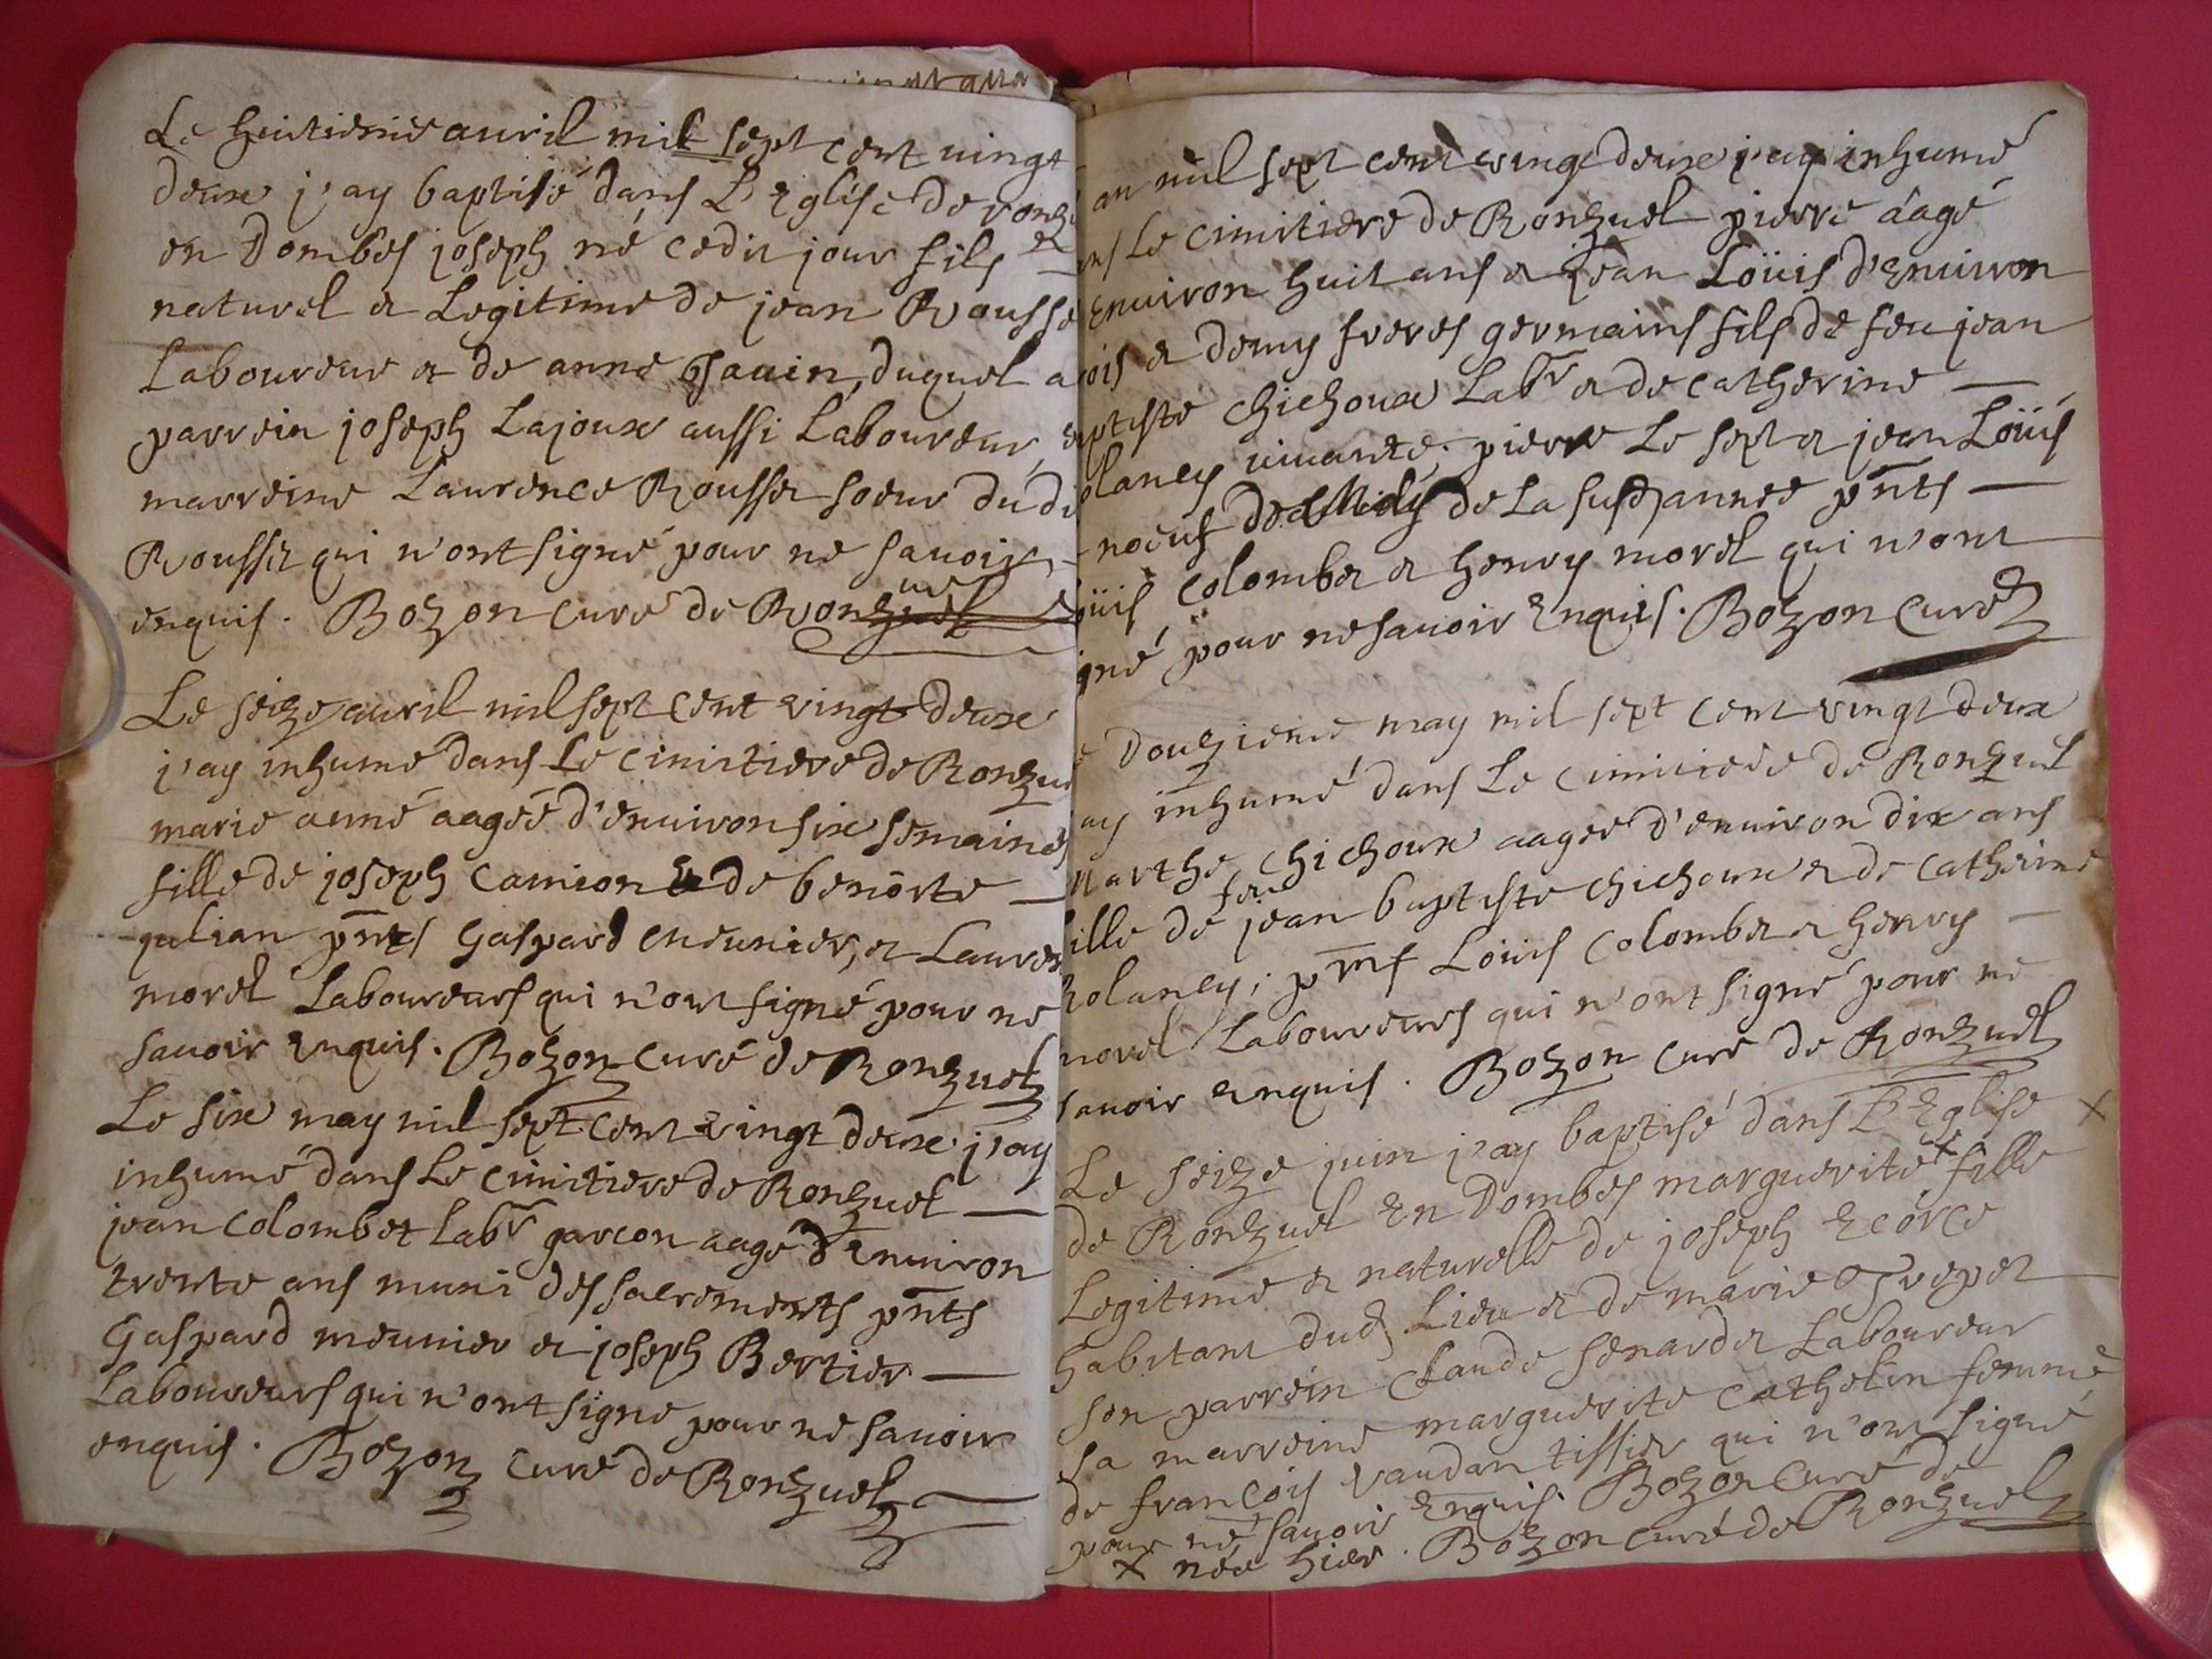 Le huitieme avril mil sept cent uingt
deux j'ay baptisé dans L'Eglise de ronz
en Dombes joseph né cedit jour fils
naturel et Legitime de jean Rousse
Laboureur et de anne Sauin, duquel a
parrein joseph Lajoux aussi Laboureur,
marreine Laurence Rousset soeur du di
Rousset qui n'ont signé pour ne sauoir
enquis. Bozon curé de Ronzuel
Le seize auril mil sept cent vingt deux
j'ay inhumé dans Le cimitiere de Ronzue
marie aimé aagée d'enuiron six semaines
fille de joseph Camion & de benoîte
galian pnts Gaspard meunier, et Lauren
morel Laboureurs qui n'ont signé pour ne
sauoir enquis. Bozon curé de Ronzuel
Le six may mil sept cent vingt deux j'ay
inhumé dans Le cimitiere de Ronzuel
jean Colombet Labr garcon aagé d'Enuiron
trente ans muni des sacrements pnts
Gaspard meunier et joseph Bertier
Laboureurs qui n'ont signé pour ne sauoir
enquis. Bozon curé de Ronzuel
an mil sept cent vingt deux j'ay inhumé
ns Le cimitiere de Ronzuel pierre âagé
Enuiron huit ans et jean Loüis d'Enuiron
ois et demy freres germains fils de feu jean
aptiste Chichoux Labr et de Catherine
olaney uiuante; pierre Le sept et jean Loüis
noeuf de May de La susd annee pnts
oüis Colombet et henry morel qui n'ont
gné pour ne sauoir Enquis. Bozon curé
Douzieme may mil sept cent vingt deux
ay inhumé dans Le cimitiere de Ronzuel
Marthe Chichoux aagee d'enuiron dix ans
ille de feu jean baptiste Chichoux et de Catherine
Rolaney; pnts Loüis Colombet et henry
morel Laboureurs qui n'ont signé pour ne
sauoir enquis. Bozon curé de Ronzuel
Le seize juin j'ay baptisé dans L'Eglise x
de Ronzuel En Dombes marguerite x fille
Legitime et naturelle de joseph Ecórce
habitant dud Lieu et de marie Trepet
son parrein Claude senardet Laboureur
sa marreine marguerite Cathelin femme
de francois vaudan tissier qui n'ont signé
pour ne sauoir Enquis. Bozon curé de
x née hier. Bozon curé de Ronzuel